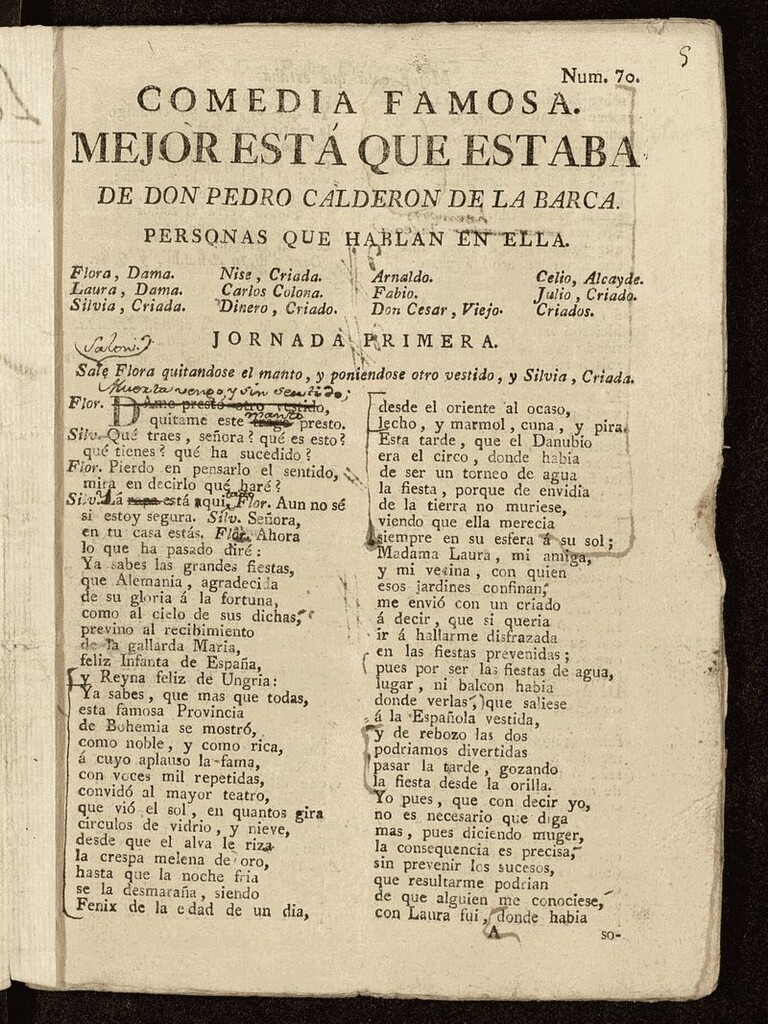 5
Num. 70.
COMEDIA FAMOSA.
MEJOR ESTÁ QUE ESTABA
DE DON PEDRO CALDERON DE LA BARCA.
PERSONAS QUE HABLAN EN ELLA.
Flora, Dama.
Laura, Dama.
Silvia, Criada.
Nise, Criada.
Carlos Colona.
Dinero, Criado.
Arnaldo.
Fabio.
Don Cesar, Viejo.
Celio, Alcayde.
Julio, Criado.
Criados.
JORNADA PRIMERA.
Salon.
Sale Flora quitandose el manto, y poniendose otro vestido, y Silvia, Criada.
Muerta vengo, y sin sentido;
Flor. DAme presto otro vestido,
manto
quitame este trage presto.
Silv. Qué traes, señora? qué es esto?
qué tienes? qué ha sucedido?
Flor. Pierdo en pensarlo el sentido,
mira en decirlo qué haré?
Silv. Lá ropa está aqui. Flor. Aun no sé
si estoy segura. Silv. Señora,
en tu casa estás. Flor. Ahora
lo que ha pasado diré:
Ya sabes las grandes fiestas,
que Alemania, agradecida
de su gloria á la fortuna,
como al cielo de sus dichas,
previno al recibimiento
de la gallarda Maria,
feliz Infanta de España,
y Reyna feliz de Ungria:
Ya sabes, que mas que todas,
esta famosa Provincia
de Bohemia se mostró,
como noble, y como rica,
á cuyo aplauso la fama,
con voces mil repetidas,
convidó al mayor teatro,
que vió el sol, en quantos gira
circulos de vidrio, y nieve,
desde que el alva le riza
la crespa melena de oro,
hasta que la noche fria
se la desmaraña, siendo
Fenix de la edad de un dia,
desde el oriente al ocaso,
lecho, y marmol, cuna, y pira.
Esta tarde, que el Danubio
era el circo, donde habia
de ser un torneo de agua
la fiesta, porque de envidia
de la tierra no muriese,
viendo que ella merecia
siempre en su esfera á su sol;
Madama Laura, mi amiga,
y mi vecina, con quien
esos jardines confinan,
me envió con un criado
á decir, que si queria
ir á hallarme disfrazada
en las fiestas prevenidas;
pues por ser las fiestas de agua,
lugar, ni balcon habia
donde verlas, que saliese
á la Española vestida,
y de rebozo las dos
podriamos divertidas
pasar la tarde, gozando
la fiesta desde la orilla.
Yo pues, que con decir yo,
no es necesario que diga
mas, pues diciendo muger,
la consequencia es precisa,
sin prevenir los sucesos,
que resultarme podrian
de que alguien me conociese,
con Laura fui, donde habia
A
so-